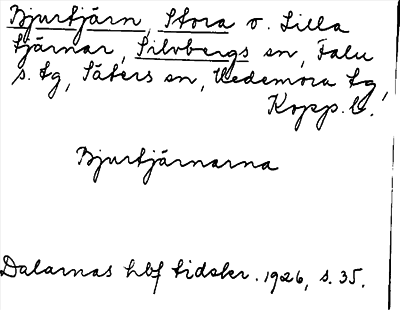 Bjurtjärn, Stora o. Lilla
tjärnar, Silvbergs sn, Falu
s. tg, Säters sn, Hedemora tg,
Kopp. l.
Bjurtjärnarna
Dalarnas hbf tidskr. 1926, s. 35.